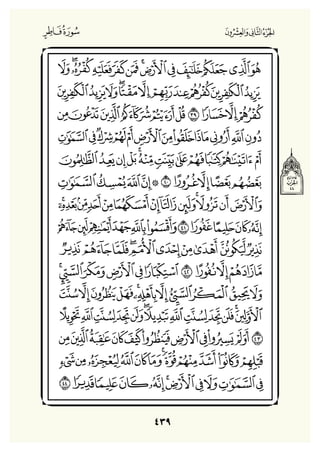 سُورَةُ فَاطِرٍ
الجُزْءُ الثَّانِي وَالعِشْرُونَ
هُوَ ٱلَّذِي جَعَلَكُمْ خَلَٰٓئِفَ فِي ٱلْأَرْضِۚ فَمَن كَفَرَ فَعَلَيْهِ كُفْرُهُۥۖ وَلَا
يَزِيدُ ٱلْكَٰفِرِينَ كُفْرُهُمْ عِندَ رَبِّهِمْ إِلَّا مَقْتًاۖ وَلَا يَزِيدُ ٱلْكَٰفِرِينَ
كُفْرُهُمْ إِلَّا خَسَارًا ٣٩ قُلْ أَرَءَيْتُمْ شُرَكَآءَكُمُ ٱلَّذِينَ تَدْعُونَ مِن
دُونِ ٱللَّهِ أَرُونِي مَاذَا خَلَقُوا۟ مِنَ ٱلْأَرْضِ أَمْ لَهُمْ شِرْكٌ فِي ٱلسَّمَٰوَٰتِ
أَمْ ءَاتَيْنَٰهُمْ كِتَٰبًا فَهُمْ عَلَىٰ بَيِّنَتٍ مِّنْهُۚ بَلْ إِن يَعِدُ ٱلظَّٰلِمُونَ
بَعْضُهُم بَعْضًا إِلَّا غُرُورًا ٤٠ ۞ إِنَّ ٱللَّهَ يُمْسِكُ ٱلسَّمَٰوَٰتِ
وَٱلْأَرْضَ أَن تَزُولَاۚ وَلَئِن زَالَتَآ إِنْ أَمْسَكَهُمَا مِنْ أَحَدٍ مِّنۢ بَعْدِهِۦٓۚ
إِنَّهُۥ كَانَ حَلِيمًا غَفُورًا ٤١ وَأَقْسَمُوا۟ بِٱللَّهِ جَهْدَ أَيْمَٰنِهِمْ لَئِن جَآءَهُمْ
نَذِيرٌ لَّيَكُونُنَّ أَهْدَىٰ مِنْ إِحْدَى ٱلْأُمَمِۖ فَلَمَّا جَآءَهُمْ نَذِيرٌ
مَّا زَادَهُمْ إِلَّا نُفُورًا ٤٢ ٱسْتِكْبَارًا فِي ٱلْأَرْضِ وَمَكْرَ ٱلسَّيِّئِۚ
وَلَا يَحِيقُ ٱلْمَكْرُ ٱلسَّيِّئُ إِلَّا بِأَهْلِهِۦۚ فَهَلْ يَنظُرُونَ إِلَّا سُنَّتَ
ٱلْأَوَّلِينَۚ فَلَن تَجِدَ لِسُنَّتِ ٱللَّهِ تَبْدِيلًاۖ وَلَن تَجِدَ لِسُنَّتِ ٱللَّهِ تَحْوِيلًا
٤٣ أَوَلَمْ يَسِيرُوا۟ فِي ٱلْأَرْضِ فَيَنظُرُوا۟ كَيْفَ كَانَ عَٰقِبَةُ ٱلَّذِينَ مِن
قَبْلِهِمْ وَكَانُوٓا۟ أَشَدَّ مِنْهُمْ قُوَّةًۚ وَمَا كَانَ ٱللَّهُ لِيُعْجِزَهُۥ مِن شَيْءٍ
فِي ٱلسَّمَٰوَٰتِ وَلَا فِي ٱلْأَرْضِۚ إِنَّهُۥ كَانَ عَلِيمًا قَدِيرًا ٤٤
٤٣٩